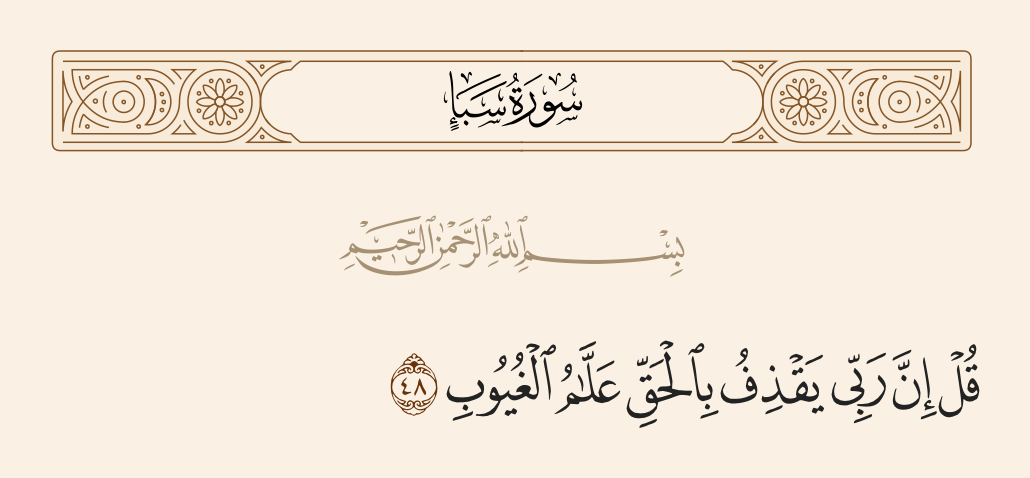 سُورَةُ سَبَإٍ
بِسْمِ ٱللَّهِ ٱلرَّحْمَٰنِ ٱلرَّحِيمِ
قُلْ إِنَّ رَبِّى يَقْذِفُ بِٱلْحَقِّ عَلَّٰمُ ٱلْغُيُوبِ ٤٨